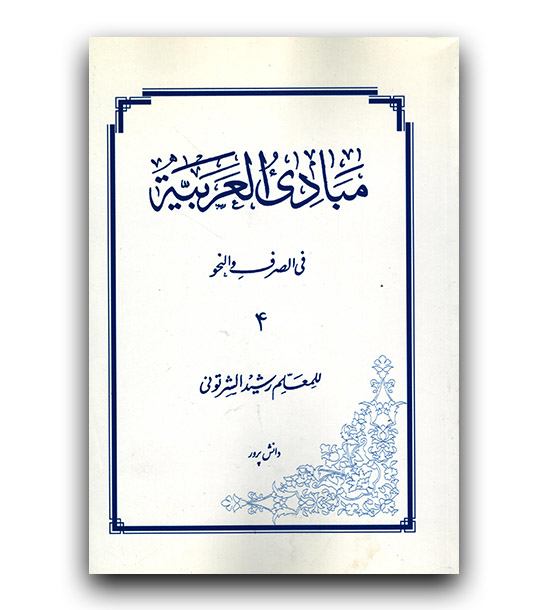 مَبَادِئُ العَرَبيَّة
فی الصرف والنحو
۴
للمعلّم رشيد الشرتونی
دانش پرور